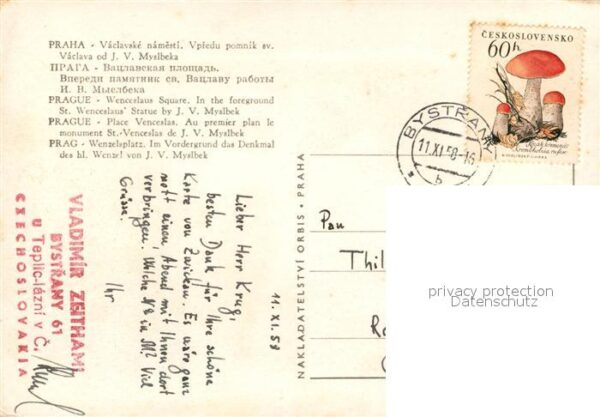 PRAHA - Václavské náměstí. Vpředu pomník sv.
Václava od J. V. Myslbeka
ПРАГА - Вацлавская площадь.
Впереди памятник св. Вацлаву работы
И. В. Мыслбека
PRAGUE - Wenceslaus Square. In the foreground
St. Wenceslaus' Statue by J. V. Myslbek
PRAGUE - Place Venceslas. Au premier plan le
monument St.-Venceslas de J. V. Myslbek
PRAG - Wenzelsplatz. Im Vordergrund das Denkmal
des hl. Wenzel von J. V. Myslbek
ČESKOSLOVENSKO
60h
BYSTŘANY
11.XI.58-16
b
NAKLADATELSTVÍ ORBIS - PRAHA
11. XI. 58
Lieber Herr Krug,
besten Dank für Ihre schöne
Karte von Zwickau. Es wäre ganz
nett einen Abend mit Ihnen dort
verbringen. Welche № in M? Viel
Grüsse.
Ihr
VLADIMÍR ZEITHAML
BYSTŘANY 61
u Teplic-lázní v Č.
CZECHOSLOVAKIA
Pan
Thil
privacy protection
Datenschutz